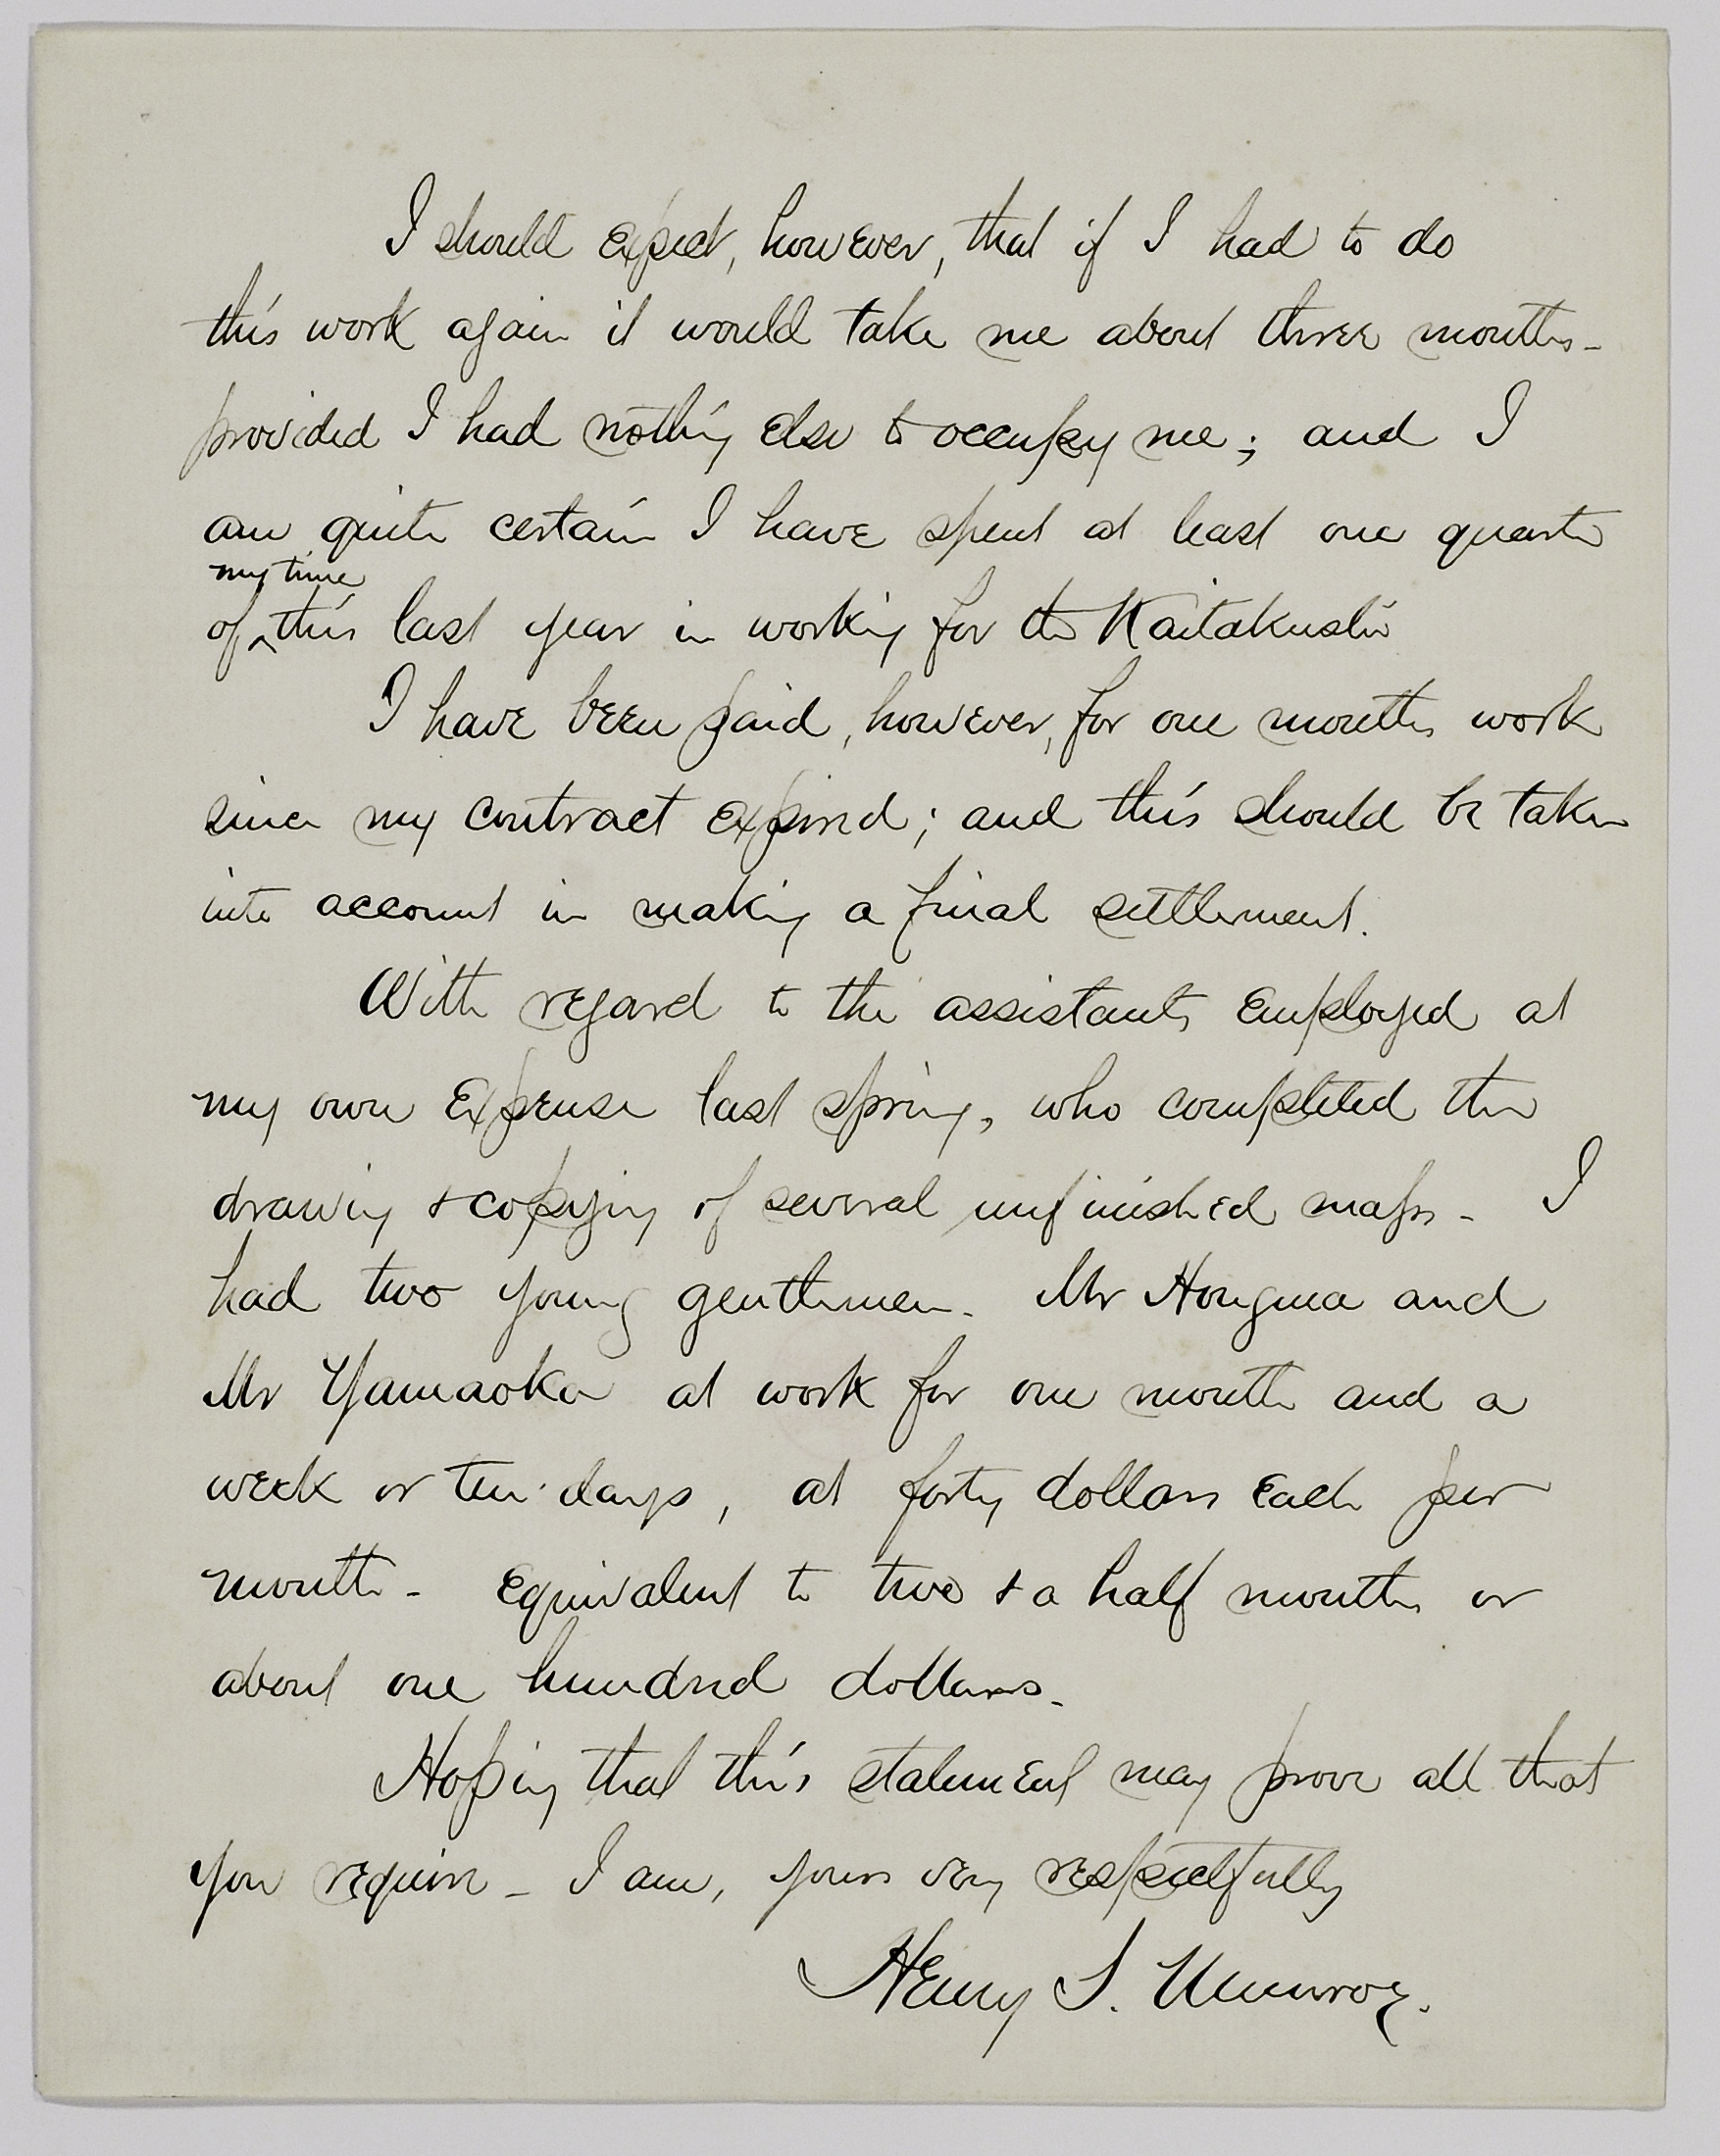 I should expect, however, that if I had to do
this work again it would take me about three months -
provided I had nothing else to occupy me; and I
am quite certain I have spent at least one quarter
my time
of ^ this last year in working for the Kaitakushi
I have been paid, however, for one months work
since my contract expired; and this should be taken
into account in making a final settlement.
With regard to the assistants employed at
my own expense last spring, who completed the
drawing & copying of several unfinished maps - I
had two young gentlemen. Mr Hongma and
Mr Yamaoka at work for one month and a
week or ten days, at forty dollars each per
month - equivalent to two & a half months or
about one hundred dollars.
Hoping that this statement may prove all that
you require - I am, yours very respectfully
Henry S. Munroe.